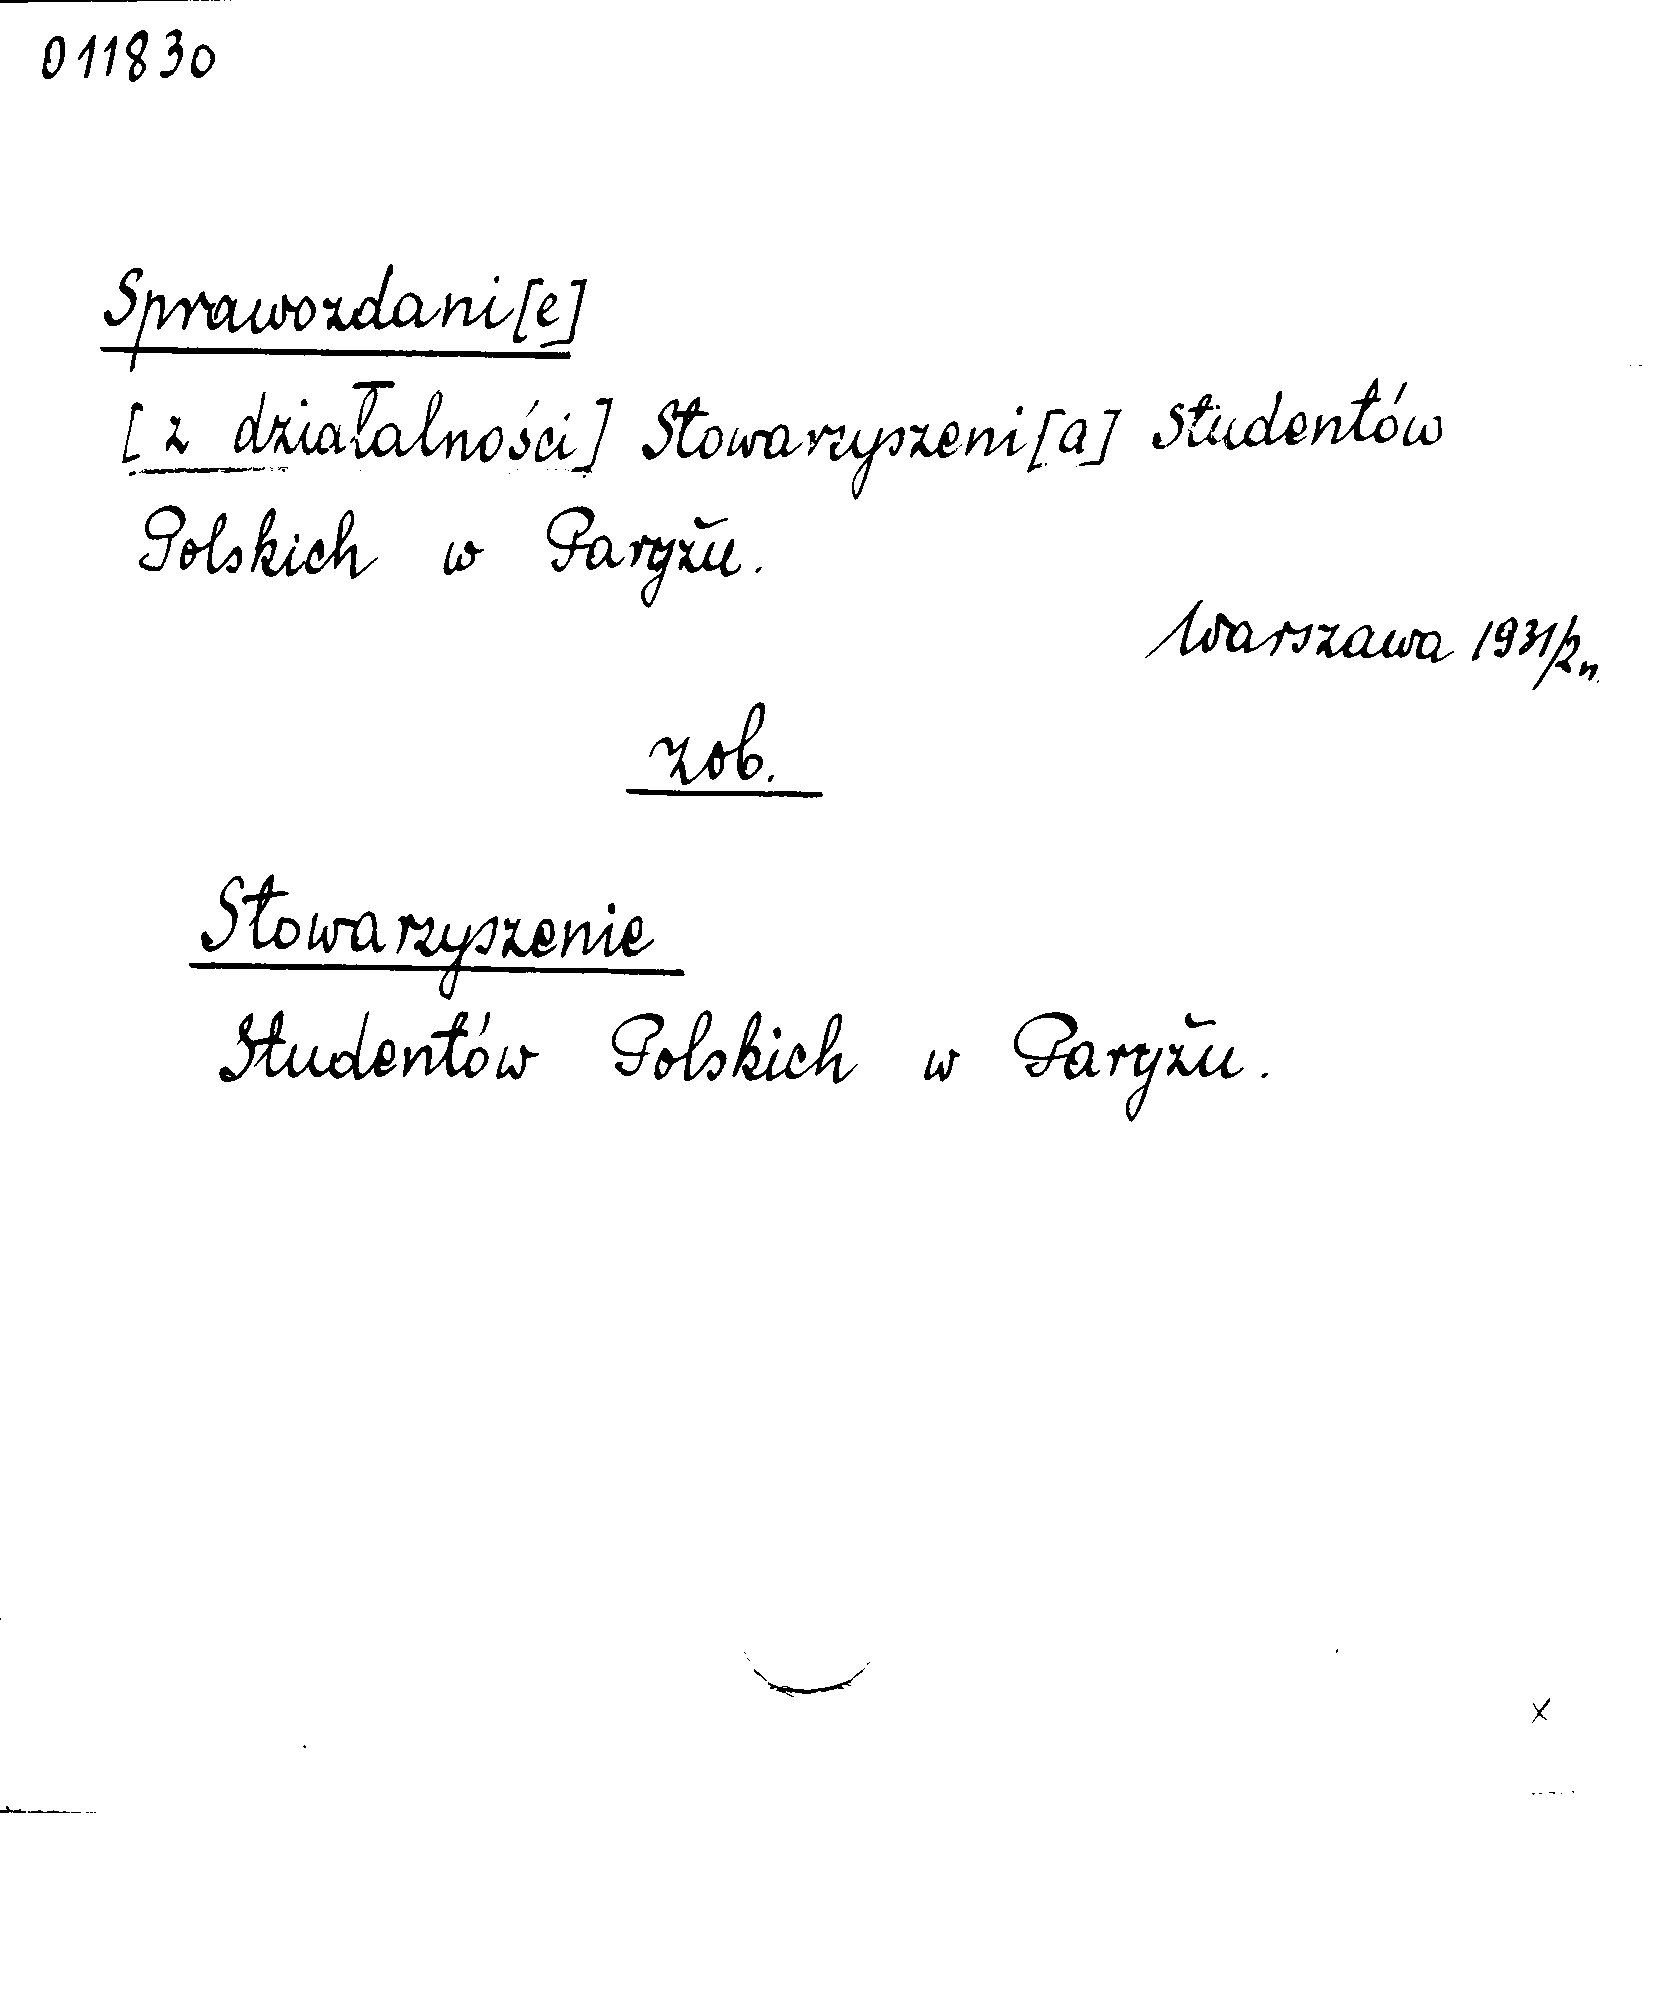 011830
Sprawozdani[e]
[z działalności] Stowarzyszeni[a] Studentów
Polskich w Paryżu.
Warszawa 1931/2n.
zob.
Stowarzyszenie
Studentów Polskich w Paryżu.
x